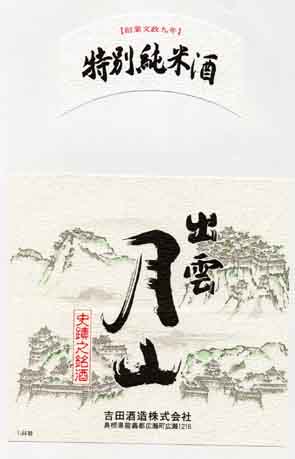 【創業文政九年】
特別純米酒
出雲
月山
史蹟之銘酒
吉田酒造株式会社
島根県能義郡広瀬町広瀬1216